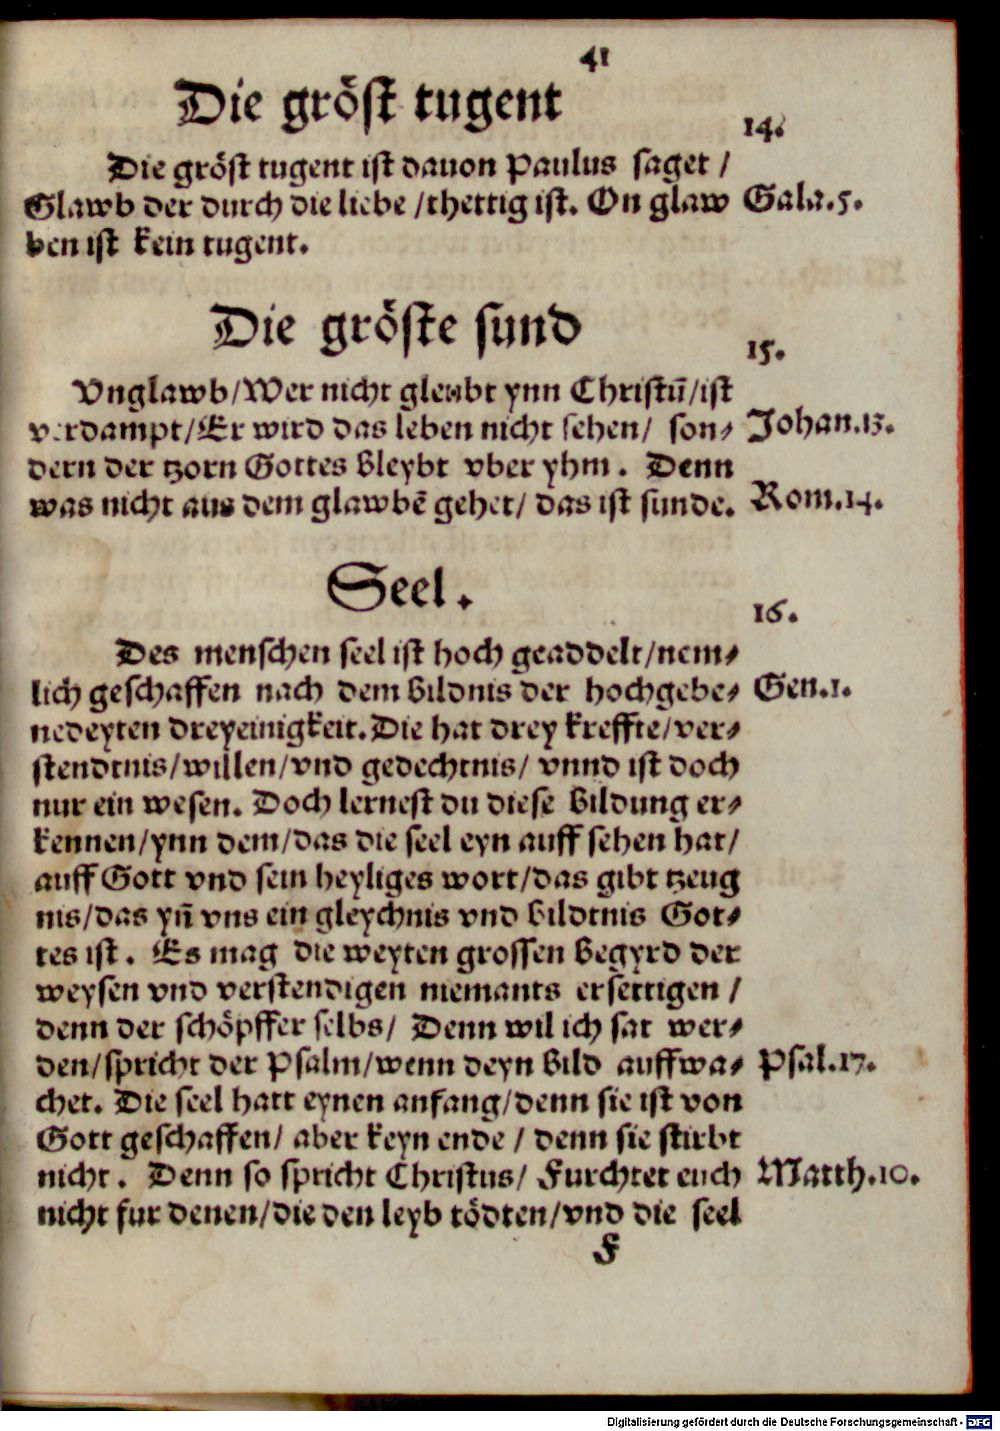 41
Die gröst tugent
14.
Die gröst tugent ist dauon Paulus saget /
Glawb der durch die liebe / thettig ist. On glaw Gala.5.
ben ist kein tugent.
Die gröste sund
15.
Vnglawb/Wer nicht glewbt ynn Christū/ist
verdampt/Er wird das leben nicht sehen/ son⸗ Johan.13.
dern der tzorn Gottes bleybt vber yhm. Denn
was nicht aus dem glawbē gehet/ das ist sunde. Rom.14.
Seel.
16.
Des menschen seel ist hoch geaddelt/nem⸗
lich geschaffen nach dem bildnis der hochgebe⸗ Gen.1.
nedeyten dreyeinigkeit. Die hat drey kreffte/ver⸗
stendtnis/willen/vnd gedechtnis/ vnnd ist doch
nur ein wesen. Doch lernest du diese bildung er⸗
kennen/ynn dem/das die seel eyn auff sehen hat/
auff Gott vnd sein heyliges wort/das gibt tzeug
nis/das yn̄ vns ein gleychnis vnd bildtnis Got⸗
tes ist. Es mag die weyten grossen begyrd der
weysen vnd verstendigen niemants ersettigen /
denn der schöpffer selbs/ Denn wil ich sat wer⸗
den/spricht der Psalm/wenn deyn bild auffwa⸗ Psal.17.
chet. Die seel hatt eynen anfang/denn sie ist von
Gott geschaffen/ aber keyn ende / denn sie stirbt
nicht. Denn so spricht Christus/ Furchtet euch Matth.10.
nicht fur denen/die den leyb tödten/vnd die seel
F
Digitalisierung gefördert durch die Deutsche Forschungsgemeinschaft - DFG